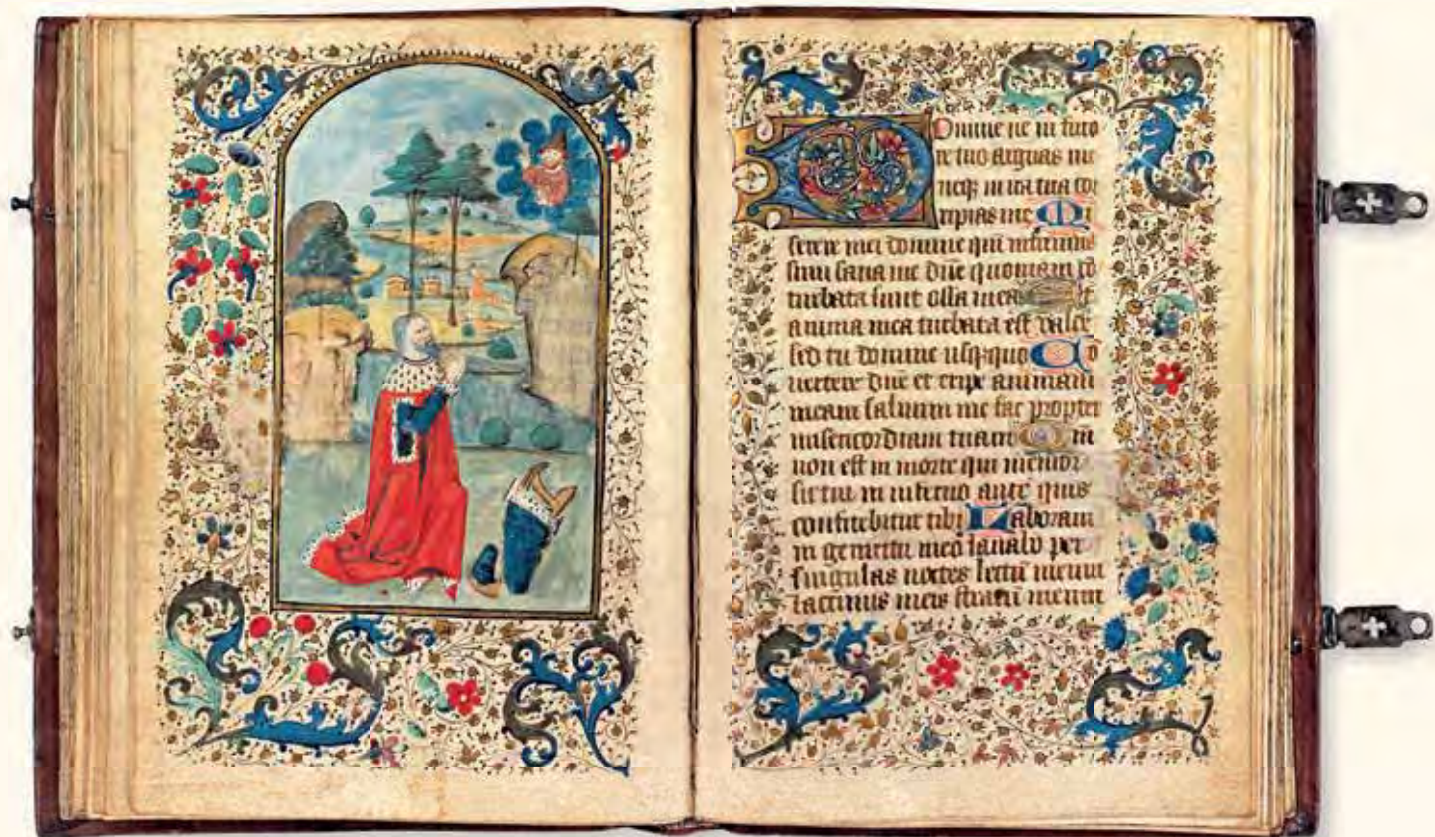 Domine ne in furo
re tuo arguas me
neq; in ira tua cor
ripias me Mi
serere mei domine qm̄ infirmus
sum sana me dn̄e quoniam cō
turbata sunt ossa mea Et
anima mea turbata est valde
sed tu domine usq;quo Cō
uertere dn̄e et eripe animam
meam saluum me fac propter
misericordiam tuam Qm̄
non est in morte qui memor
sit tui in inferno aute quis
confitebitur tibi Laboraui
in gemitu meo lauabo per
singulas noctes lectū meum
lacrimis meis stratū meum